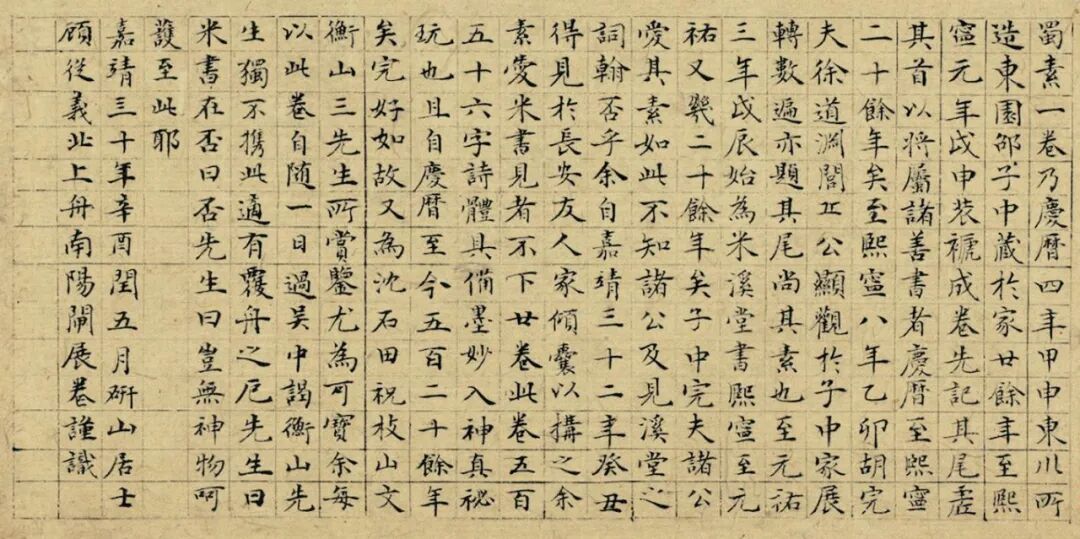 蜀素一卷乃慶曆四年甲申東川所
造東園邵子中藏於家廿餘年至熙
寧元年戊申裝褫成卷先記其尾虛
其首以將屬諸善書者慶曆至熙寧
二十餘年矣至熙寧八年乙卯胡完
夫徐道淵閭丘公顯觀於子中家展
轉數遍亦題其尾尚其素也至元祐
三年戊辰始為米溪堂書熙寧至元
祐又幾二十餘年矣子中完夫諸公
愛其素如此不知諸公及見溪堂之
詞翰否乎余自嘉靖三十二年癸丑
得見於長安友人家傾囊以搆之余
素愛米書見者不下廿卷此卷五百
五十六字詩體具備墨妙入神真祕
玩也且自慶曆至今五百二十餘年
矣完好如故又為沈石田祝枝山文
衡山三先生所賞鑒尤為可寶余每
以此卷自随一日過吴中謁衡山先
生獨不攜此適有覆舟之厄先生曰
米書在否曰否先生曰豈無神物呵
護至此耶
嘉靖三十年辛酉閏五月研山居士
顧從義北上舟南陽閘展卷謹識